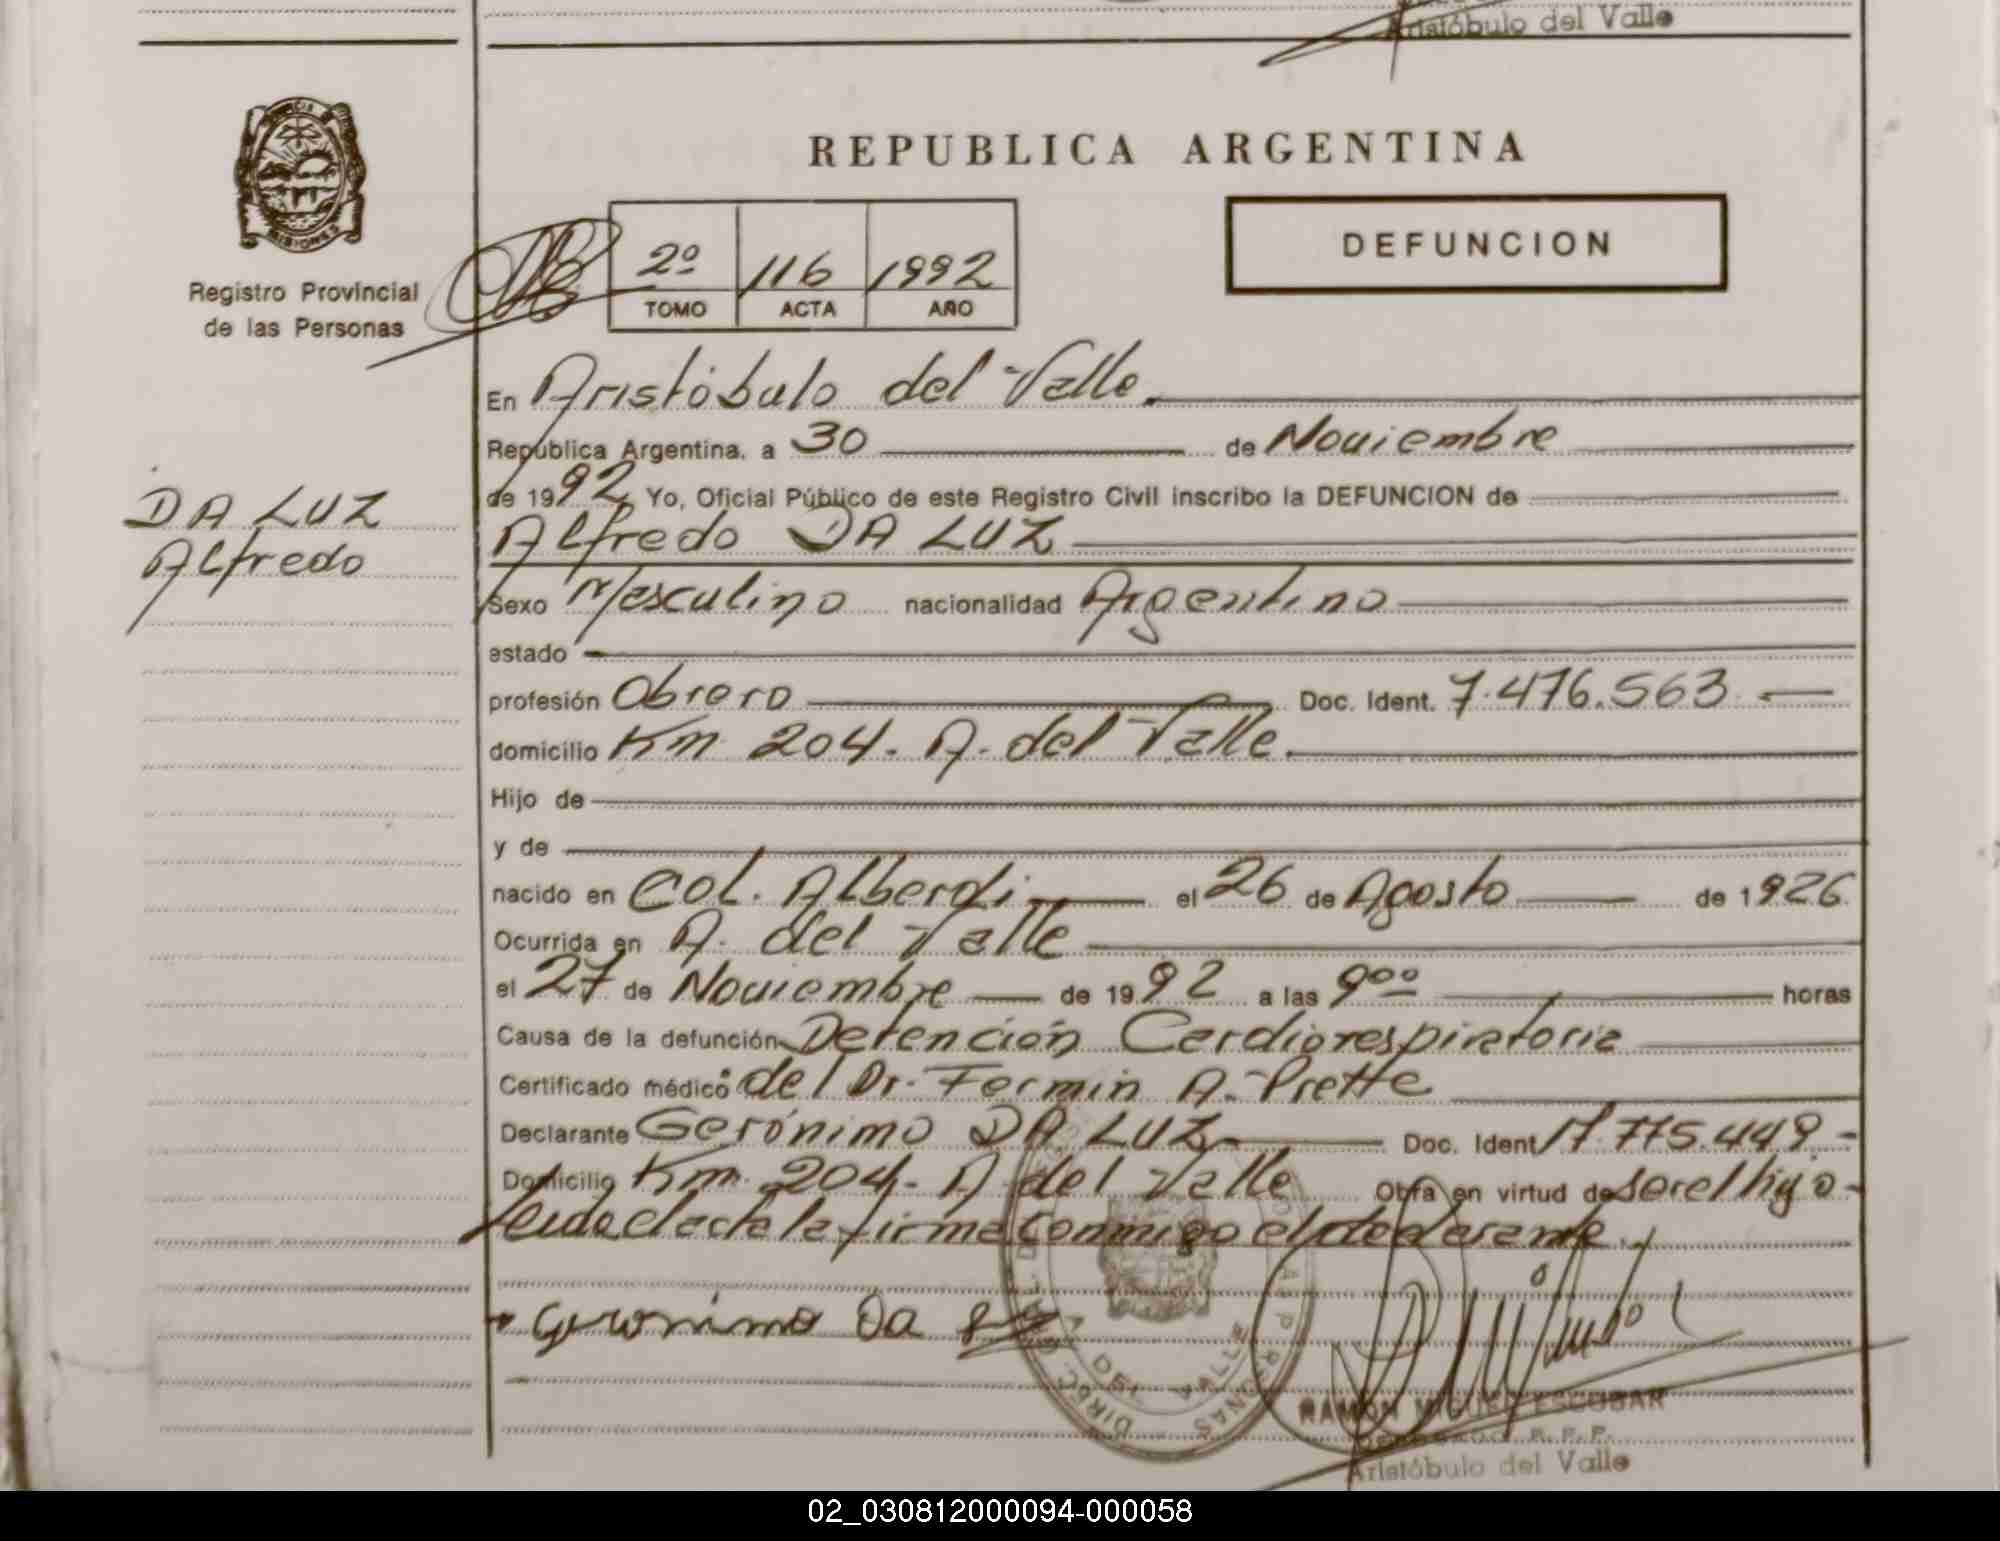 Aristóbulo del Valle
REPUBLICA ARGENTINA
MISIONES
2º 116 1992
TOMO ACTA AÑO
DEFUNCION
Registro Provincial
de las Personas
DA LUZ
Alfredo
En Aristóbulo del Valle.
Republica Argentina, a 30 de Noviembre
de 1992, Yo, Oficial Público de este Registro Civil inscribo la DEFUNCION de
Alfredo DA LUZ
Sexo Masculino nacionalidad Argentino
estado
profesión Obrero Doc. Ident. 7.476.563
domicilio Km 204. A. del Valle.
Hijo de
y de
nacido en Col. Alberdi el 26 de Agosto de 1926.
Ocurrida en A. del Valle
el 27 de Noviembre de 1992 a las 9ºº horas
Causa de la defunción Detención Cardiorespiratoria
Certificado médico del Dr. Fermin A. Prette
Declarante Gerónimo DA LUZ Doc. Ident 17.775.449.-
Domicilio Km. 204- A del Valle Obra en virtud de ser el hijo-
Leida el acta la firma conmigo el declarante.
Geronimo Da
DIREC. PERSONAS
DEL VALLE
RAMON MIGUEL ESCOBAR
DELEGADO R. P. P.
Aristóbulo del Valle
02_030812000094-000058